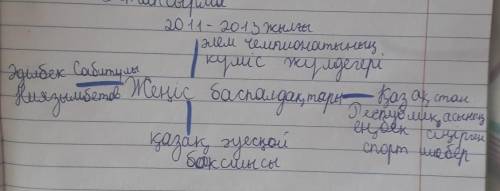 2011-2013 жылғы
әлем чемпионатының
күміс жүлдегері
Әдилбек Сабитұлы
Ниязымбетов
Жеңіс баспалдақтары
Қазақстан
Республикасының
еңбек сіңірген
спорт шебер
қазақ әуесқой
боксшысы